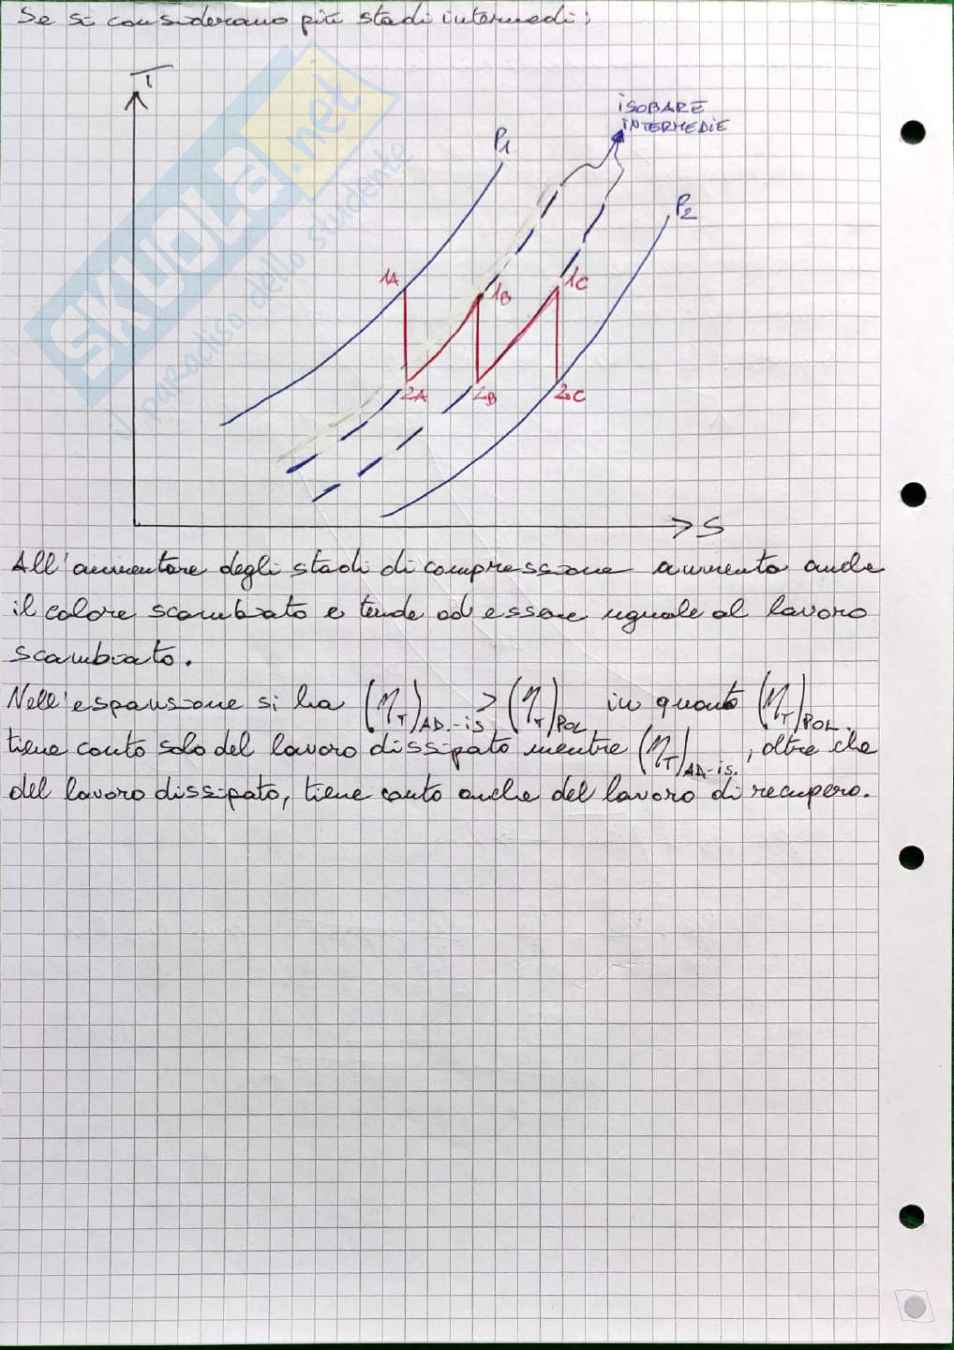 Se si considerano più stadi intermedi:
T
P1
ISOBARE
INTERMEDIE
P2
1A
1B
1C
2A
2B
2C
S
SKUOLA.net
il paradiso dello studente
All'aumentare degli stadi di compressione aumenta anche
il calore scambiato e tende ad essere uguale al lavoro
scambiato.
Nell'espansione si ha (η_T)_AD.-is > (η_T)_POL in quanto (η_T)_POL.
tiene conto solo del lavoro dissipato mentre (η_T)_AD-is., oltre che
del lavoro dissipato, tiene conto anche del lavoro di recupero.